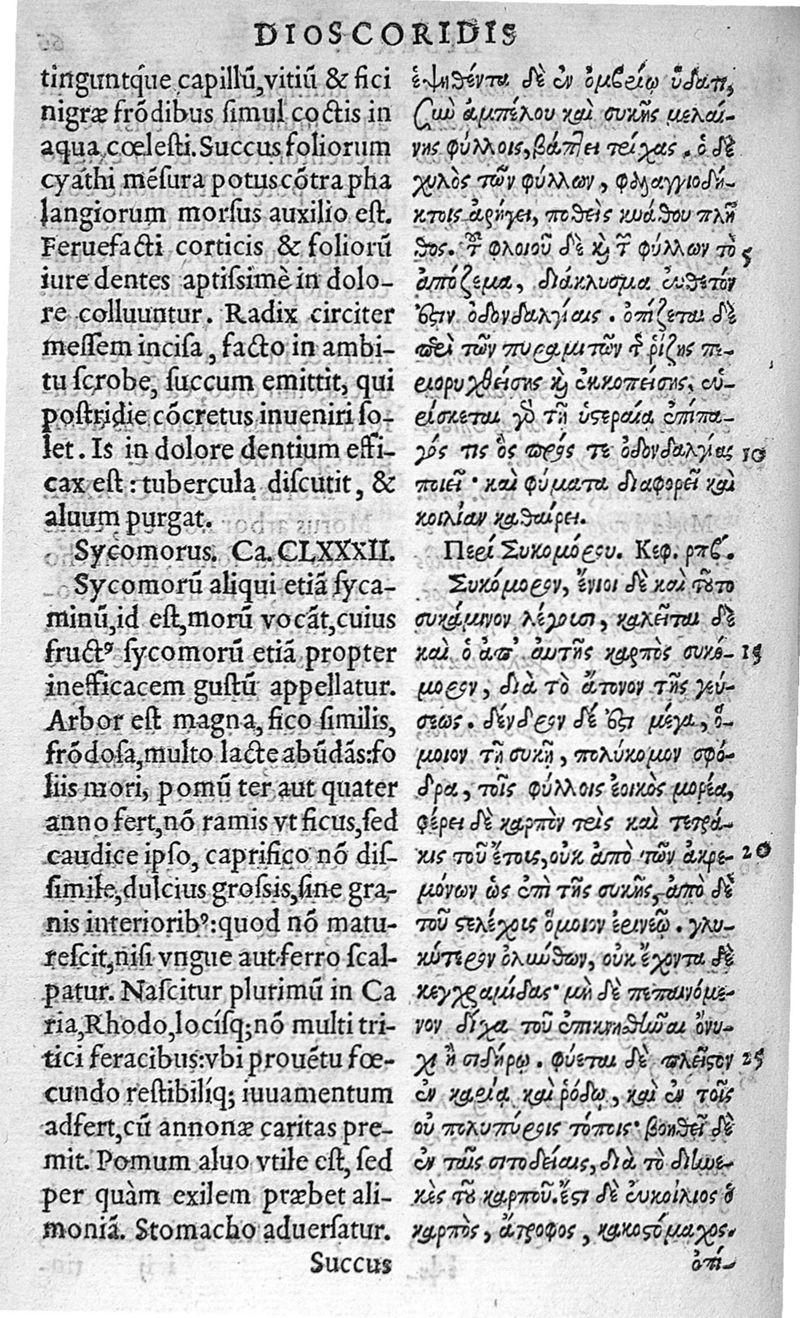 DIOSCORIDIS
tinguntq́ue capillũ, vitiũ & fici
nigræ frõdibus simul coctis in
aqua cœlesti. Succus foliorum
cyathi mẽsura potus cõtra pha
langiorum morsus auxilio est.
Feruefacti corticis & foliorũ
iure dentes aptissimè in dolo-
re colluuntur. Radix circiter
messem incisa, facto in ambi-
tu scrobe, succum emittit, qui
postridie cõcretus inueniri so-
let. Is in dolore dentium effi-
cax est: tubercula discutit, &
aluum purgat.
Sycomorus. Ca. CLXXXII.
Sycomorũ aliqui etiã syca-
minũ, id est, morũ vocãt, cuius
fructꝰ sycomorũ etiã propter
inefficacem gustũ appellatur.
Arbor est magna, fico similis,
frõdosa, multo lacte abũdãs: fo
liis mori, pomũ ter aut quater
anno fert, nõ ramis vt ficus, sed
caudice ipso, caprifico nõ dis-
simile, dulcius grossis, sine gra-
nis interioribꝰ: quod nõ matu-
rescit, nisi vngue aut ferro scal-
patur. Nascitur plurimũ in Ca
ria, Rhodo, locísq; nõ multi tri-
tici feracibus: vbi prouẽtu fœ-
cundo restibilíq; iuuamentum
adfert, cũ annonæ caritas pre-
mit. Pomum aluo vtile est, sed
per quàm exilem præbet ali-
moniã. Stomacho aduersatur.
Succus
ἑψηθέντα δὲ ἐν ὀμβρίῳ ὕδατι,
σὺν ἀμπέλου καὶ συκῆς μελαί-
νης φύλλοις, βάπτει τρίχας. ὁ δὲ
χυλὸς τῶν φύλλων, φαλαγγιοδή-
κτοις ἀρήγει, ποθεὶς κυάθου πλῆ
θος. τοῦ φλοιοῦ δὲ καὶ τῶν φύλλων τὸ 5
ἀπόζεμα, διάκλυσμα εὔθετόν
ἐστιν ὀδονταλγίαις. ὀπίζεται δὲ
περὶ τῶν πυραμιτῶν τῆς ῥίζης πε-
ριορυχθείσης καὶ ἐκκοπείσης, εὑ-
ρίσκεται γὰρ τῇ ὑστεραίᾳ ἐπίπα-
γός τις ὃς πρός τε ὀδονταλγίας 10
ποιεῖ· καὶ φύματα διαφορεῖ καὶ
κοιλίαν καθαίρει.
Περὶ Συκομόρου. Κεφ. ρπβ.
Συκόμορον, ἔνιοι δὲ καὶ τοῦτο
συκάμινον λέγουσι, καλεῖται δὲ
καὶ ὁ ἀπ' αὐτῆς καρπὸς συκό- 15
μορον, διὰ τὸ ἄτονον τῆς γεύ-
σεως. δένδρον δέ ἐστι μέγα, ὅ-
μοιον τῇ συκῇ, πολύκομον σφό-
δρα, τοῖς φύλλοις ἐοικὸς μορέᾳ,
φέρει δὲ καρπὸν τρὶς καὶ τετρά-
κις τοῦ ἔτους, οὐκ ἀπὸ τῶν ἀκρε- 20
μόνων ὡς ἐπὶ τῆς συκῆς, ἀπὸ δὲ
τοῦ στελέχους ὅμοιον ἐρινεῷ. γλυ-
κύτερον ὀλύνθων, οὐκ ἔχοντα δὲ
κεγχραμίδας· μὴ δὲ πεπαινόμε-
νον δίχα τοῦ ἐπικνηθῆναι ὄνυ-
χι ἢ σιδήρῳ. φύεται δὲ πλεῖστον 25
ἐν καρίᾳ καὶ ῥόδῳ, καὶ ἐν τοῖς
οὐ πολυπύροις τόποις· βοηθεῖ δὲ
ἐν ταῖς σιτοδείαις, διὰ τὸ διηνε-
κὲς τοῦ καρποῦ. ἔστι δὲ εὐκοίλιος ὁ
καρπὸς, ἄτροφος, κακοστόμαχος.
ὀπί-